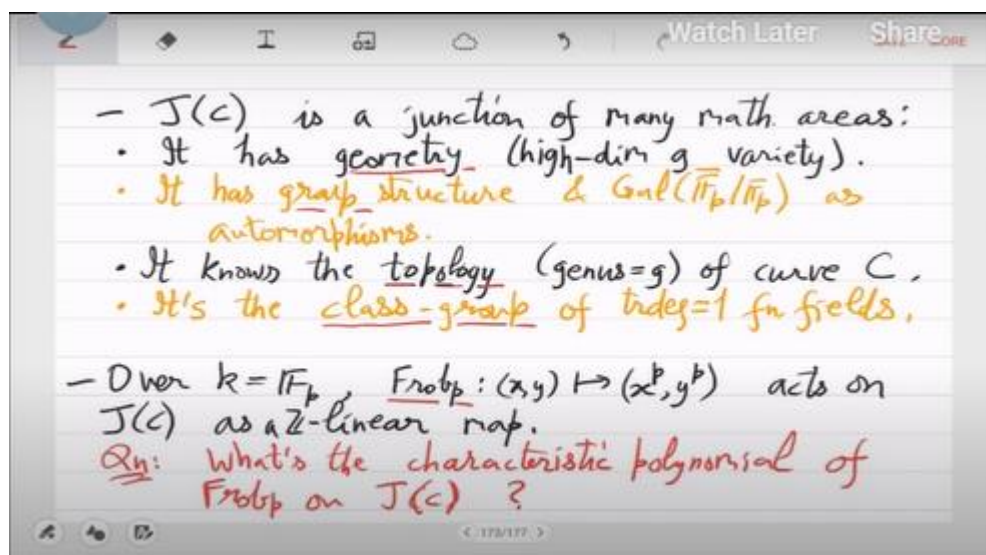 Watch Later Share MORE
- J(C) is a junction of many math. areas:
• It has geometry (high-dim g variety).
• It has group structure & Gal(F̅p/Fp) as
automorphisms.
• It knows the topology (genus=g) of curve C.
• It's the class-group of trdeg=1 fn fields.
- Over k=𝔽p, Frobp: (x,y) ↦ (x^p, y^p) acts on
J(C) as a Z-linear map.
Qn: What's the characteristic polynomial of
Frobp on J(C) ?
173/177